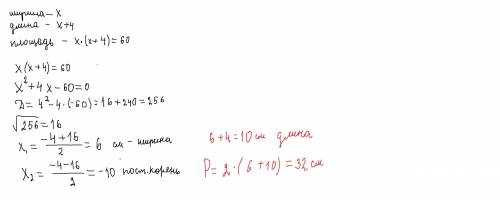 ширина - x
длина - x+4
площадь - x·(x+4)=60
x(x+4)=60
x²+4x-60=0
D=4²-4·(-60)=16+240=256
√256=16
x₁=(-4+16)/2=6 см - ширина
6+4=10 см длина
x₂=(-4-16)/2=-10 пост.корень
P=2·(6+10)=32 см